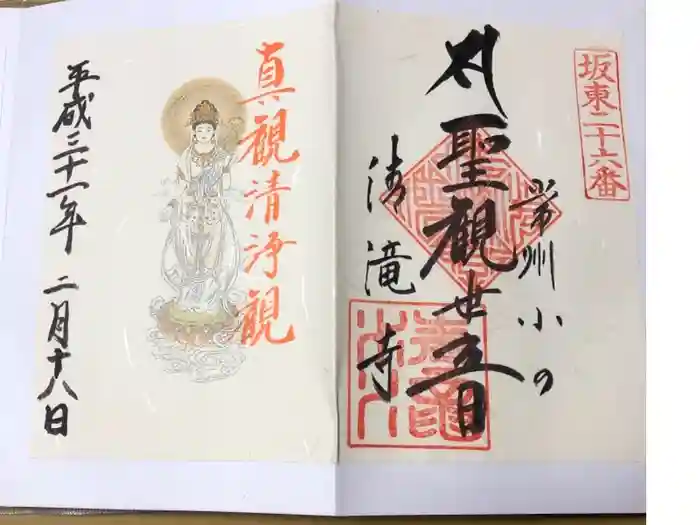 坂東二十六番
常州小の
聖観世音
清滝寺
真観清浄観
平成三十一年二月十八日